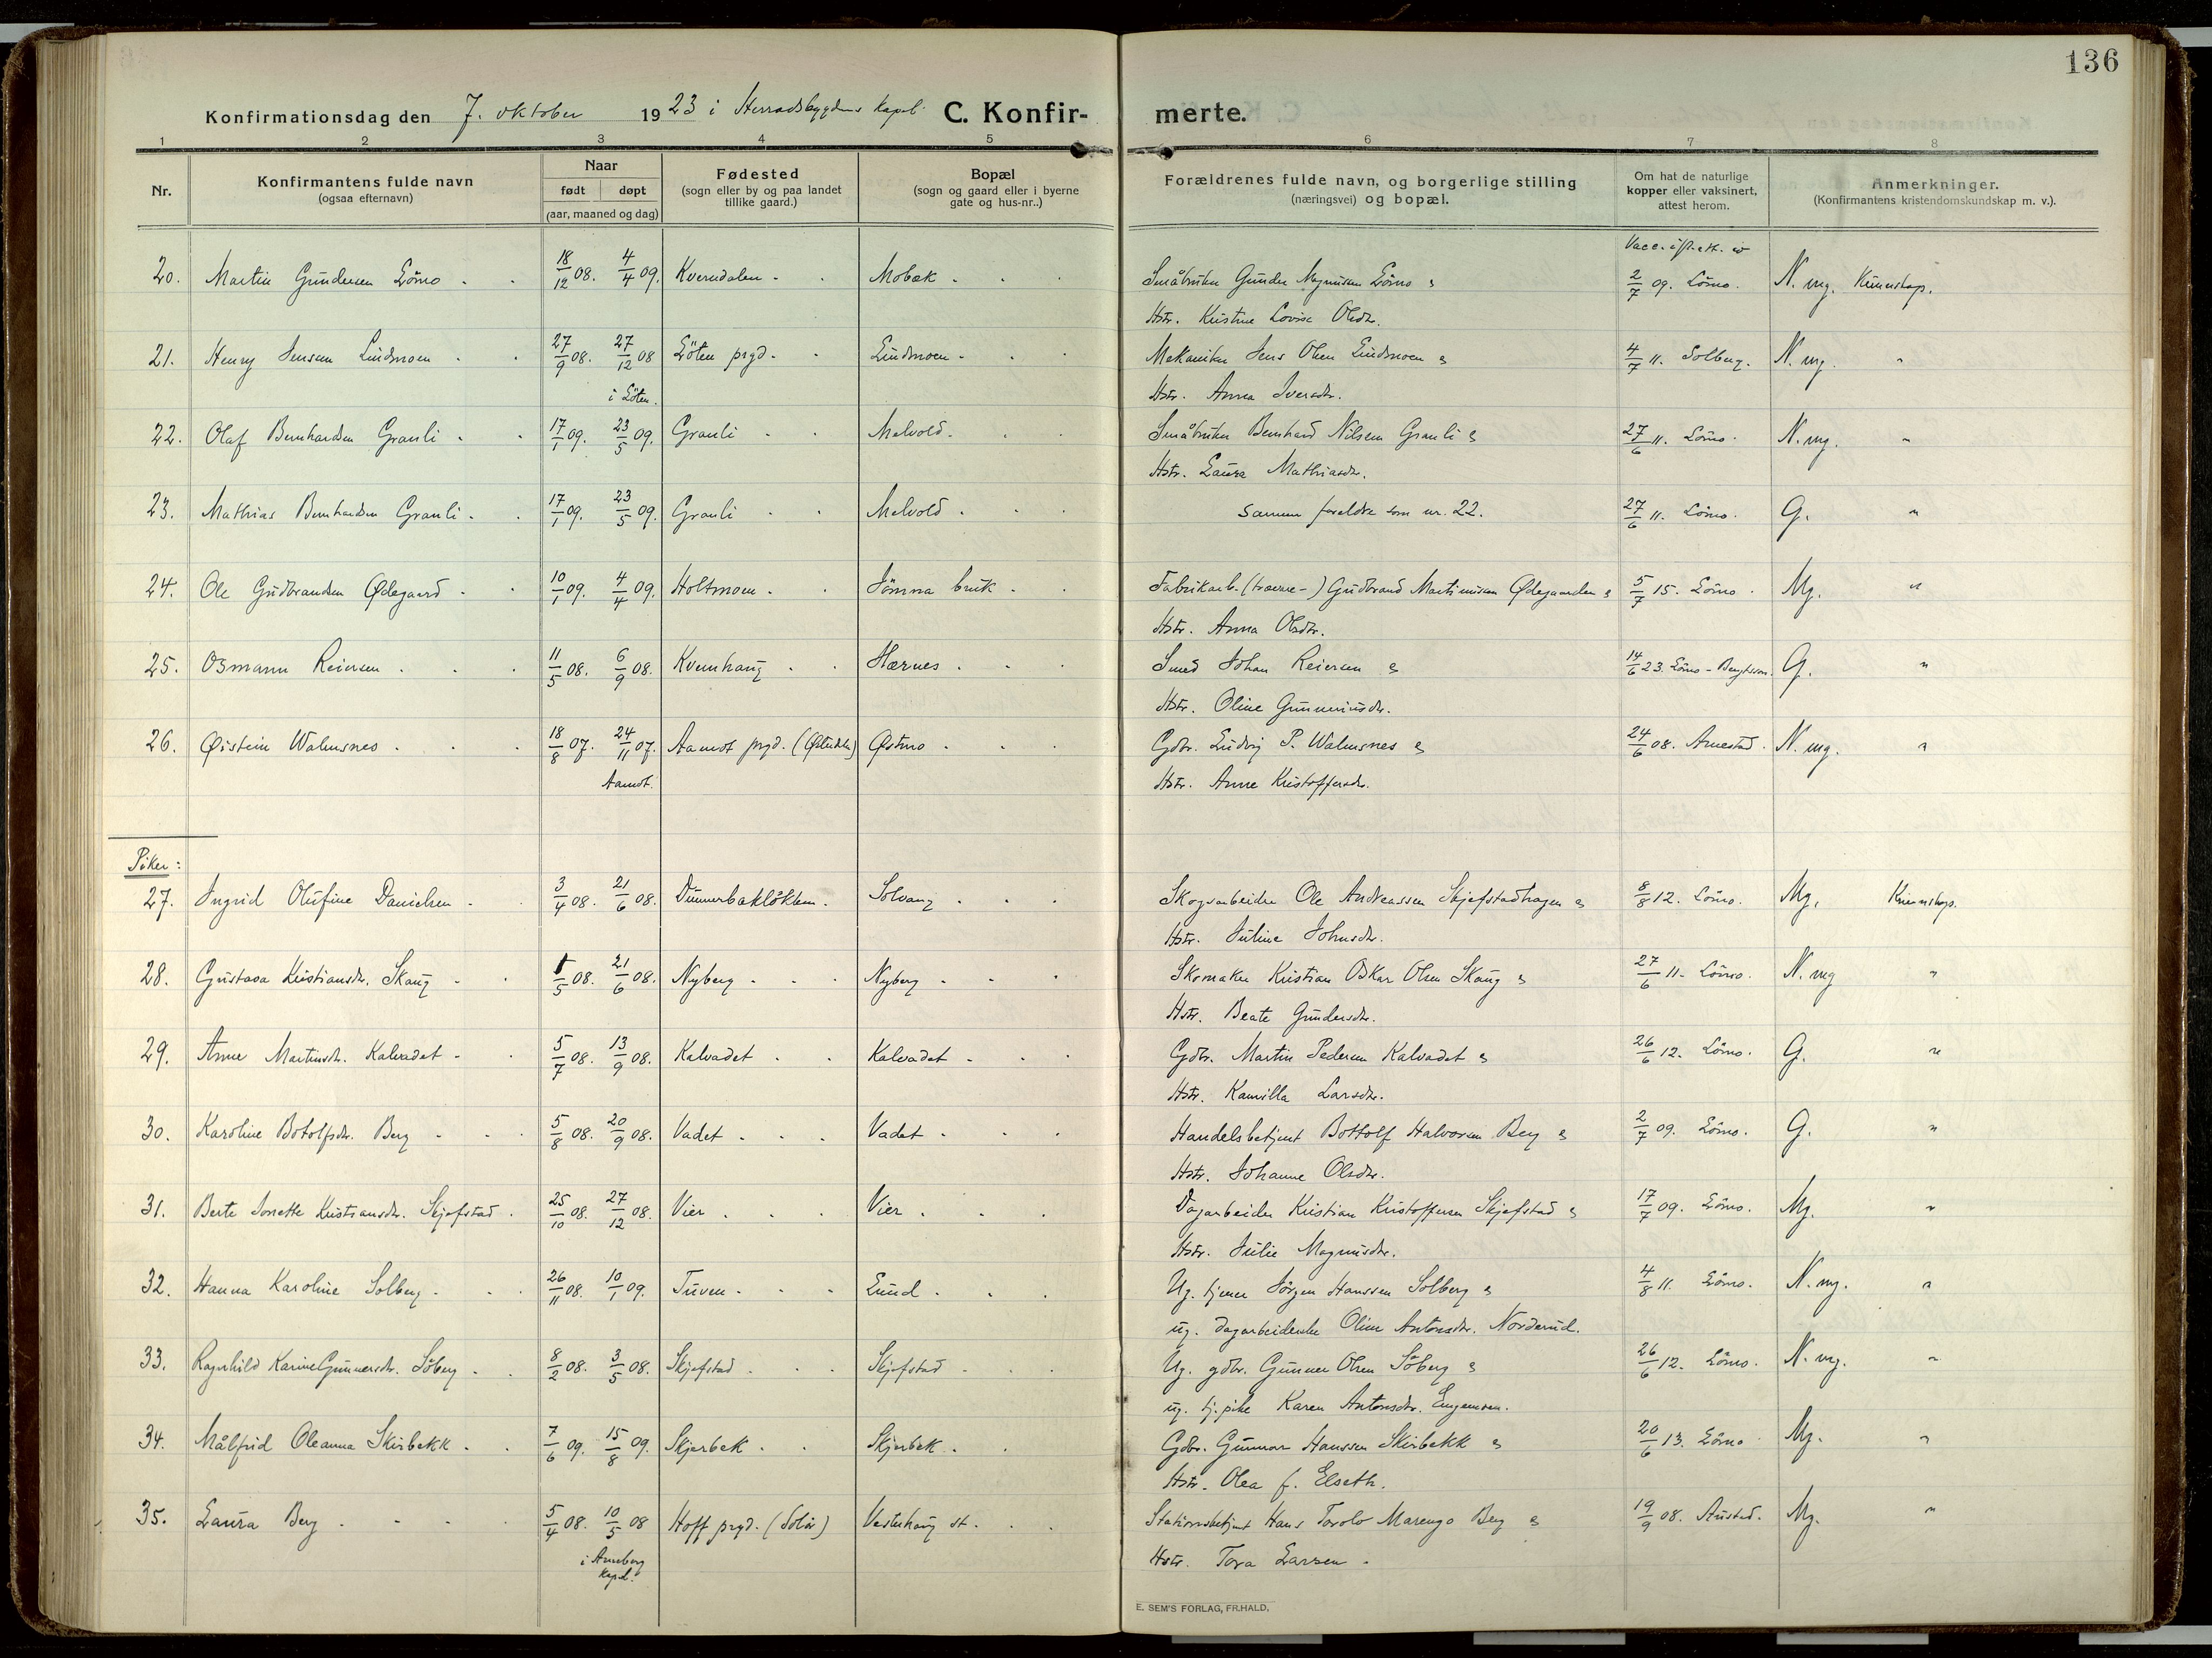 136
Konfirmationsdag den 7. oktober 1923 i Herradsbygdens kapel. C. Konfir- merte.
1 2 3 4 5 6 7 8
Nr. Konfirmantens fulde navn (ogsaa efternavn) Naar født døpt (aar, maaned og dag) Fødested (sogn eller by og paa landet tillike gaard.) Bopæl (sogn og gaard eller i byerne gate og hus-nr..) Forældrenes fulde navn, og borgerlige stilling (næringsvei) og bopæl. Om hat de naturlige kopper eller vaksinert, attest herom. Anmerkninger. (Konfirmantens kristendomskundskap m. v.).
Vacc. ifl. att. av
20. Martin Gundersen Lömo 18/12 08. 4/4 09. Kverndalen Mobæk Småbruker Gunder Magnusen Lömo & 2/7 09. Lömo. N. mg. Kunnskap.
Hstr. Kristine Lovise Olsdtr.
21. Henry Jensen Lindmoen 27/9 08. 27/12 08 Löten prgd. Lindmoen Mekaniker Jens Olsen Lindmoen & 4/7 11. Solberg. N. mg. "
i Löten. Hstr. Anna Iversdtr.
22. Olaf Bernhardsen Granli 17/1 09. 23/5 09. Granli Melvold Småbruker Bernhard Nilsen Granli & 27/6 11. Lömo. N. mg. "
Hstr. Laura Mathiasdtr.
23. Mathias Bernhardsen Granli 17/1 09. 23/5 09. Granli Melvold Samme foreldre som nr. 22. 27/6 11. Lömo. G. "
24. Ole Gudbrandsen Ødegaard 10/1 09. 4/4 09. Holtmoen Jömna bruk Fabrikarb. (træsse-) Gudbrand Martinusen Ødegaarden & 5/7 15. Lömo. Mg. "
Hstr. Anna Olsdtr.
25. Osmann Reiersen 11/5 08. 6/9 08. Kvernhaug Hernes Smed Johan Reiersen & 14/6 23. Lömo - Bengtsson. G. "
Hstr. Oline Gunneriusdtr.
26. Øistein Walmsnes 18/8 07. 24/11 07. Aamot prgd. (Østerdalen) Østmo Gdbr. Ludvig P. Walmsnes & 24/6 08. Arnestad. N. mg. "
Aamot. Hstr. Anne Kristoffersdtr.
Piker:
27. Ingrid Olufine Danielsen 3/4 08. 21/6 08. Dummerbakløkken Solvang Skogsarbeider Ole Andreassen Skjefstadhagen & 8/8 12. Lömo. Mg. Kunnskap.
Hstr. Juline Johnsdtr.
28. Gustava Kristiansdtr. Skaug 1/5 08. 21/6 08. Nyberg Nyberg Skomaker Kristian Oskar Olsen Skaug & 27/6 11. Lömo. N. mg "
Hstr. Beate Gundersdtr.
29. Anne Martinsdtr. Kalvadet 5/7 08. 13/9 08. Kalvadet Kalvadet Gdbr. Martin Pedersen Kalvadet & 26/6 12. Lömo. G. "
Hstr. Kamilla Larsdtr.
30. Karoline Botolfsdtr. Berg 5/8 08. 20/9 08. Vadet Vadet Handelsbetjent Bottolf Halvorsen Berg & 2/7 09. Lömo. G. "
Hstr. Johanne Olsdtr.
31. Berte Jonette Kristiansdtr. Skjefstad 25/10 08. 27/12 08. Vier Vier Dagarbeider Kristian Kristoffersen Skjefstad & 17/7 09. Lömo. Mg. "
Hstr. Julie Magnusdtr.
32. Hanna Karoline Solberg 26/11 08. 10/1 09. Tuven Lund Ug. tjener Jörgen Hanssen Solberg & 4/8 11. Lömo. N. mg. "
ug. dagarbeiderske Oline Antonsdtr. Norderud.
33. Ragnhild Karine Gunnersdtr. Söberg 8/2 08. 3/5 08. Skjefstad Skjefstad Ug. gdbr. Gunner Olsen Söberg & 26/6 12. Lömo. N. mg. "
ug. tj.pike Karen Antonsdtr. Engemoen.
34. Målfrid Oleanna Skirbekk 7/6 09. 15/8 09. Skjerbek Skjerbek Gdbr. Gunnar Hanssen Skirbekk & 20/6 13. Lömo Mg. "
Hstr. Olea f. Elseth.
35. Laura Berg 5/4 08. 10/5 08 Hoff prgd. (Solør) Vesterhaug st. Stationsbetjent Hans Torolv Marengo Berg & 19/9 08. Austad. Mg. "
i Arneberg kapel. Hstr. Tora Larsen.
E. SEM'S FORLAG, FR.HALD.